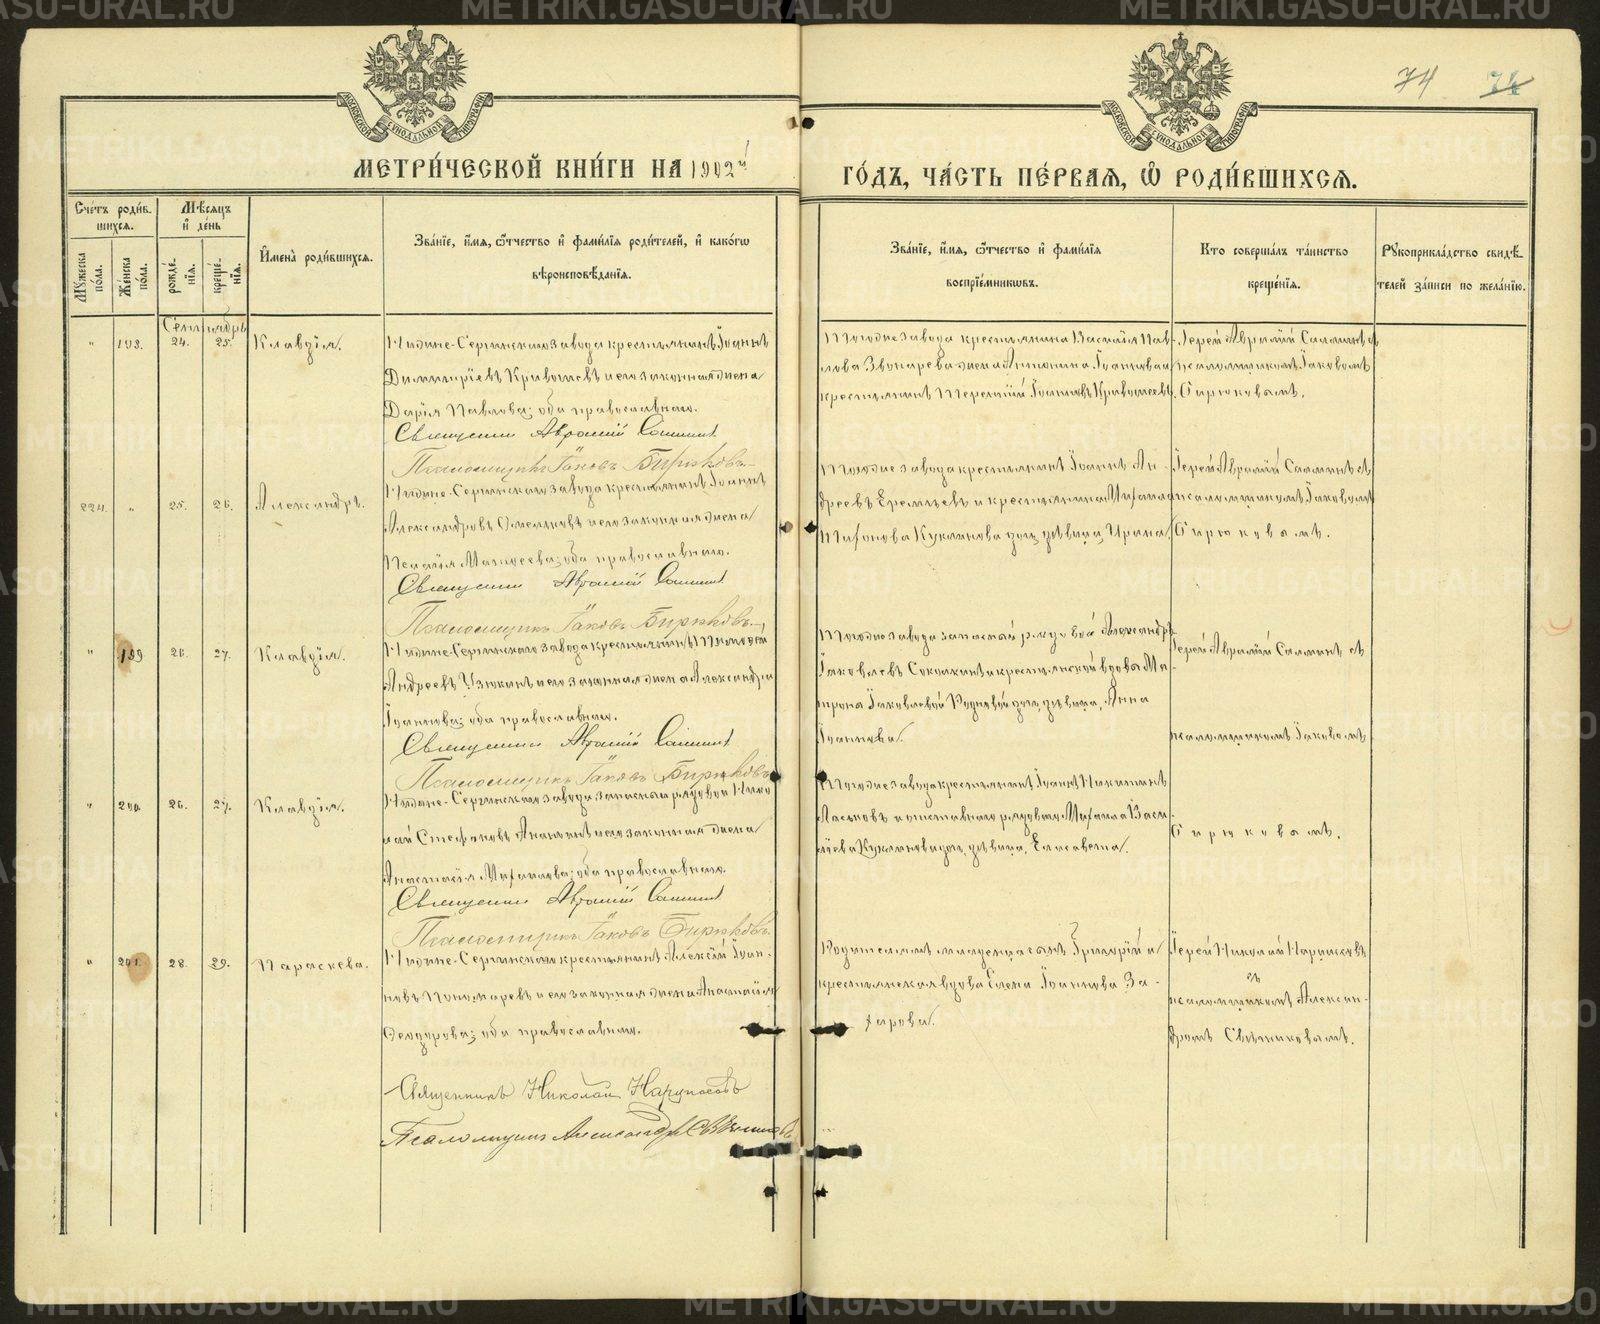 74 74
МОСКОВСКОЙ СѴНОДАЛЬНОЙ ТИПОГРАФІИ
МОСКОВСКОЙ СѴНОДАЛЬНОЙ ТИПОГРАФІИ
МЕТРИ́ЧЕСКОЙ КНИ́ГИ НА 1902й
ГО́ДЪ, ЧА́СТЬ ПЕ́РВАѦ, Ѽ РОДИ́ВШИХСѦ.
Сче́тъ роди́в-
шихся.
Мѣ́сяцъ
и҆ де́нь
Мꙋ́жеска по́ла.
Же́нска по́ла.
рожде́-нїя.
креще́-нїя.
И҆мена̀ роди́вшихся.
Зва́нїе, и҆́мя, ѻ҆́тчество и҆ фами́лїя роди́телей, и҆ како́гѡ
вѣроисповѣ́данїя.
Зва́нїе, и҆́мя, ѻ҆́тчество и҆ фами́лїя
воспрїе́мникѡвъ.
Кто соверша́лъ та́инство
креще́нїя.
Рꙋкоприкла́дство свидѣ́-
телей за́писи по жела́нїю.
Сентябрь
" 198. 24. 25. Клавдія.
Нижне-Сергинскаго завода крестьянинъ Іоаннъ
Димитріевъ Кривошеевъ и его законная жена
Дарія Павлова; оба православные.
Священникъ Авраамій
Псаломщикъ Іаковъ Бирюковъ
Того же завода крестьянина Василія Пав-
лова Звонарева жена Антонина Іоаннова и
крестьянинъ Терентій Іоанновъ Кривошеевъ.
Іерей Авраамій съ
псаломщикомъ Іаковомъ
Бирюковымъ.
224. " 25. 26. Александръ.
Нижне-Сергинскаго завода крестьянинъ Іоаннъ
Александровъ и его законная жена
Пелагія Матвеева; оба православные.
Священникъ Авраамій
Псаломщикъ Іаковъ Бирюковъ
Того же завода крестьянинъ Іоаннъ Ан-
дреевъ Еремеевъ и крестьянина Михаила
Куклинова дочь, дѣвица, Ирина.
Іерей Авраамій съ
псаломщикомъ Іаковомъ
Бирюковымъ.
" 199 26. 27. Клавдія.
Нижне-Сергинскаго завода крестьянинъ Тимофей
Андреевъ Узюкинъ и его законная жена Александра
Іоаннова; оба православные.
Священникъ Авраамій
Псаломщикъ Іаковъ Бирюковъ
Того же завода запасный рядовой Александръ
Іаковлевъ и крестьянской вдовы Ма-
троны Іаковлевой дочь, дѣвица, Анна
Іоаннова.
Іерей Авраамій съ
псаломщикомъ Іаковомъ
" 200 26. 27. Клавдія.
Нижне-Сергинскаго завода запасный рядовой Нико-
лай Стефановъ Ананьинъ и его законная жена
Анастасія Михаилова; оба православные.
Священникъ Авраамій
Псаломщикъ Іаковъ Бирюковъ
Того же завода крестьянинъ Іоаннъ Никитинъ
и отставного рядового Михаила Васи-
ліева Куклинова дочь, дѣвица, Елисавета.
Бирюковымъ.
" 201. 28. 29. Параскева.
Нижне-Сергинскаго крестьянинъ Алексій Іоан-
новъ Пономаревъ и его законная жена Анастасія
Ѳеодорова; оба православные.
Священникъ Николай
Псаломщикъ Александръ
сынъ Григорій и
крестьянская вдова Елена Іоаннова За-
харова.
Іерей Николай
съ
псаломщикомъ Алексан-
дромъ
METRIKI.GASO-URAL.RU